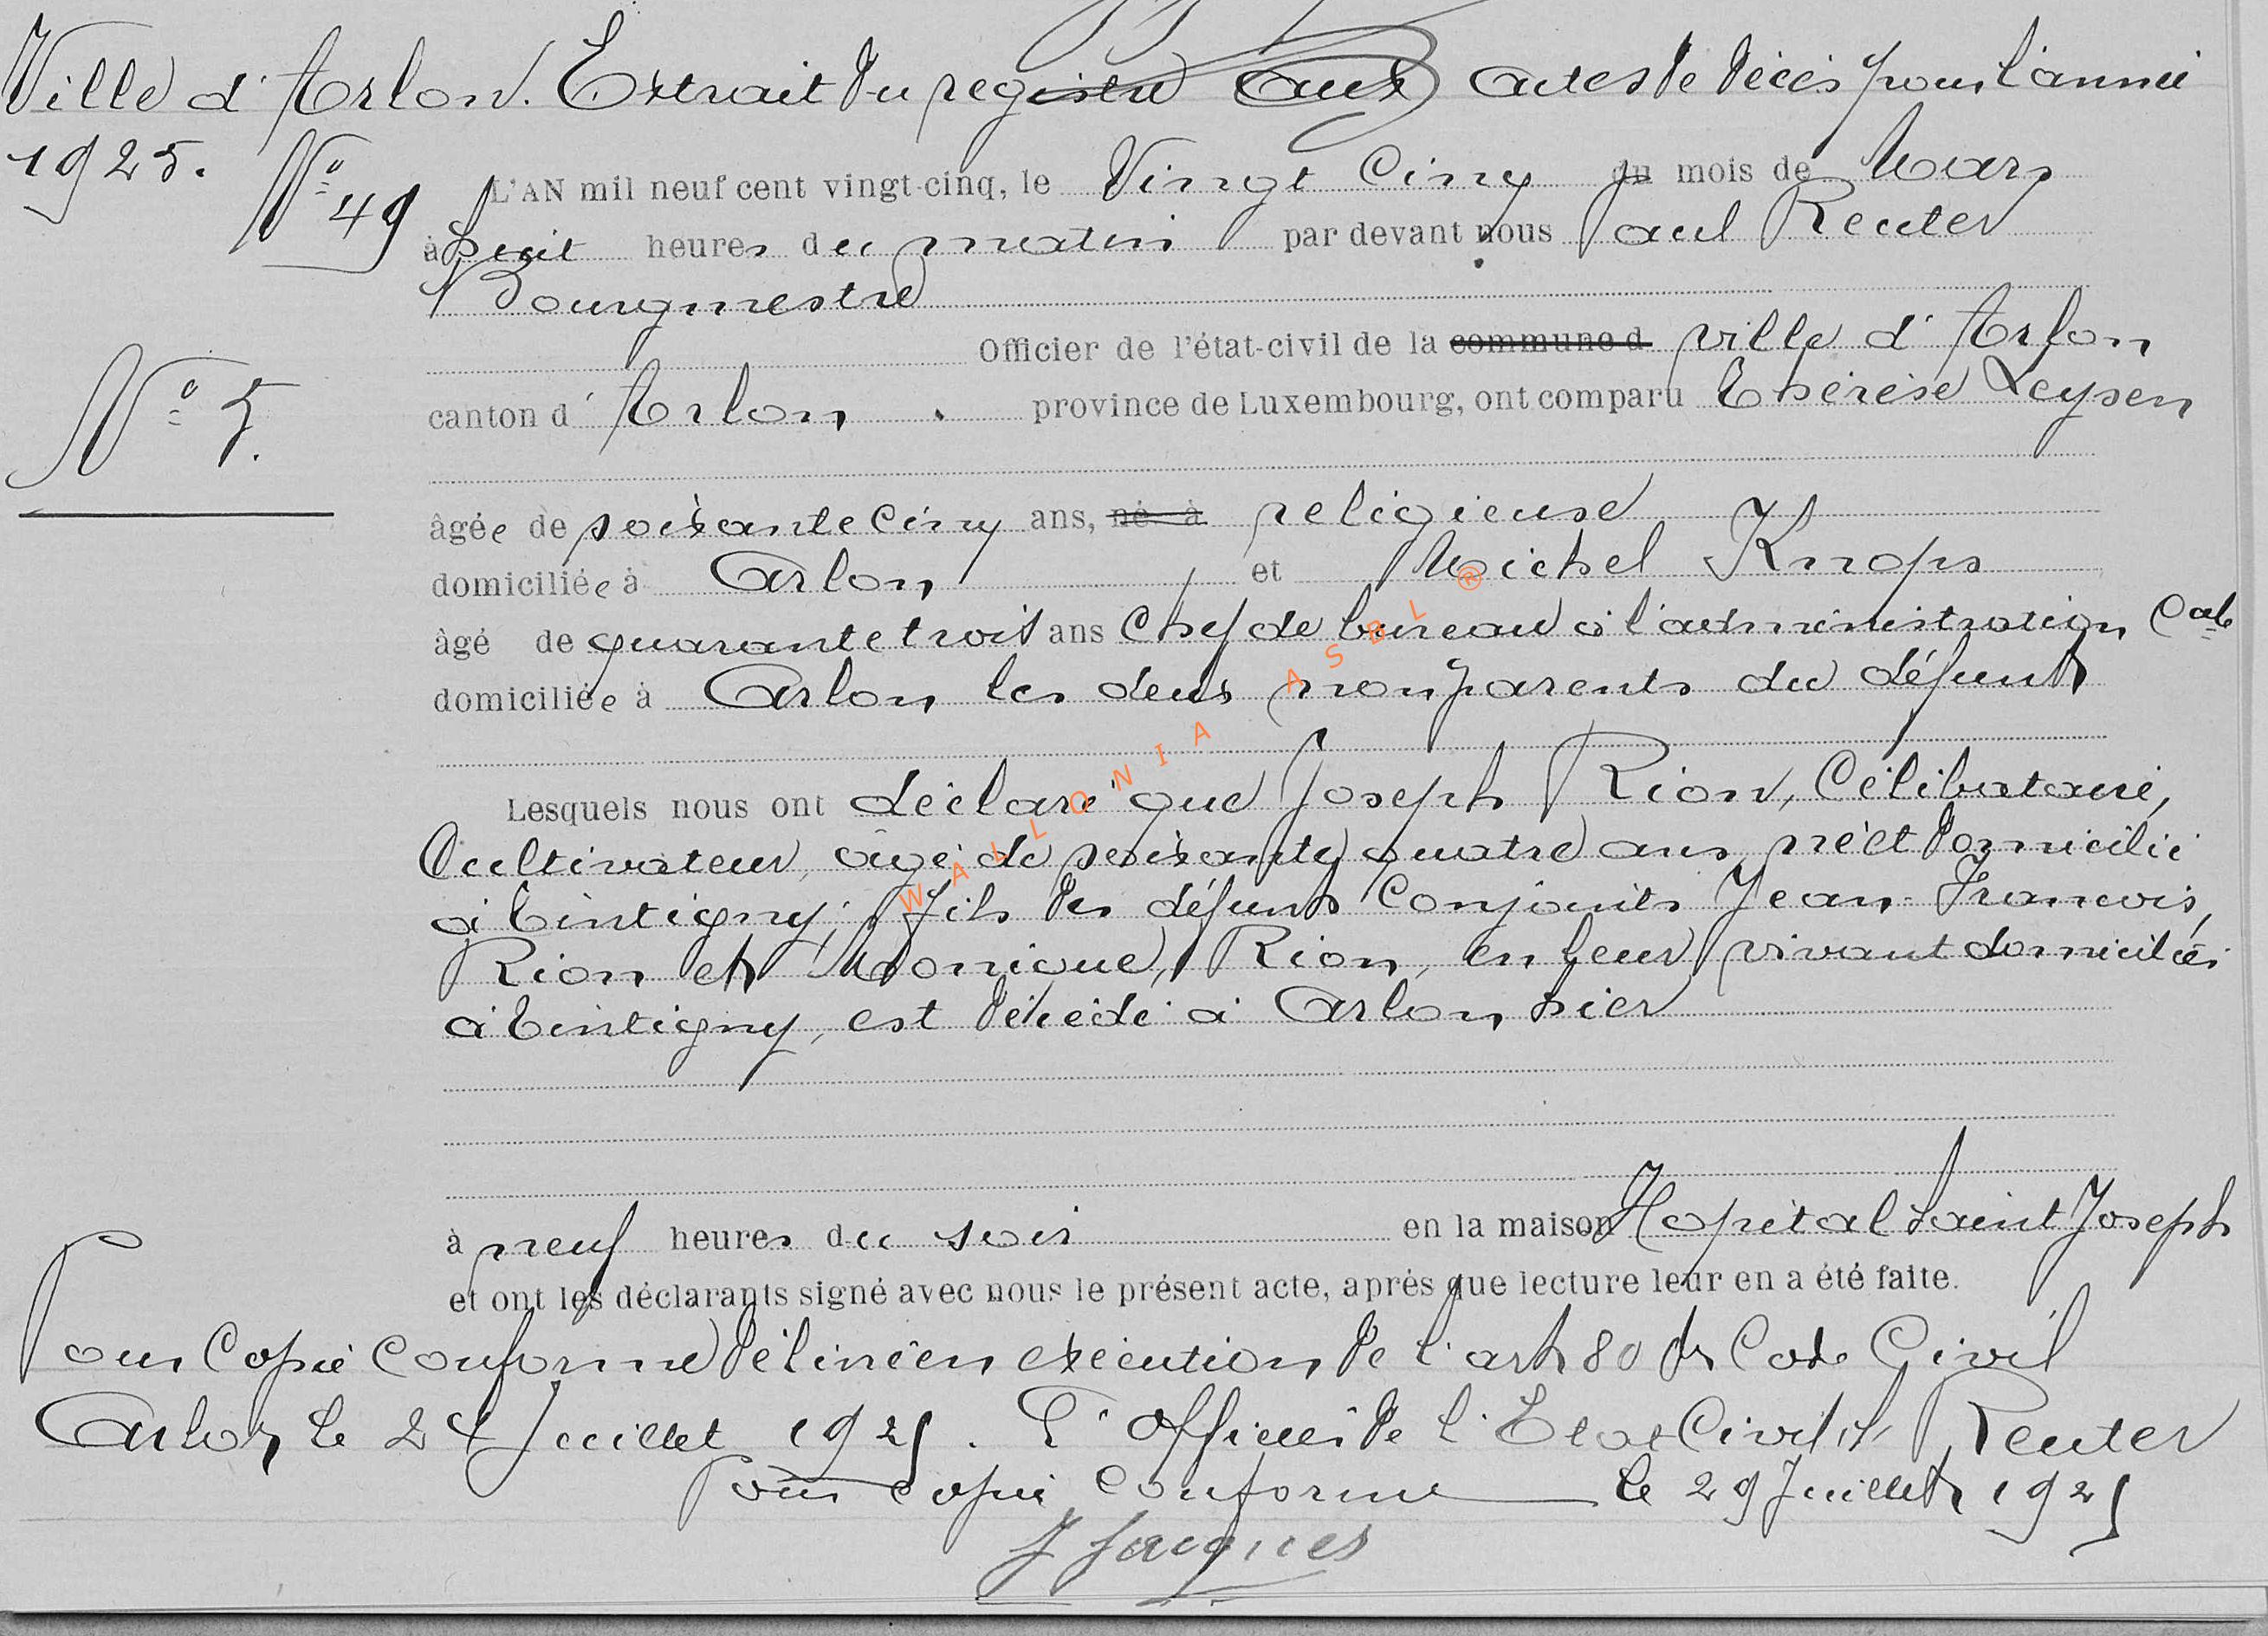 Ville d'Arlon. Extrait du registre aux actes de décès pour l'année
1925.
N° 49
L'AN mil neuf cent vingt-cinq, le Vingt Cinq du mois de Mars
à huit heures du matin par devant nous Paul Reuter
Bourgmestre
Officier de l'état-civil de la commune d ville d'Arlon
canton d'Arlon. province de Luxembourg, ont comparu Thérèse Leysen
N° 5.
âgée de soixante cinq ans, né à religieuse
domiciliée à Arlon et Michel Knops
âgé de quarante trois ans Chef de bureau à l'administration Cale
domiciliée à Arlon les deux non parents du défunt
Lesquels nous ont déclaré que Joseph Rion, Célibataire,
Cultivateur, âgé de soixante quatre ans, né et domicilié
à Tintigny, fils des défunts Conjoints Jean-Francois,
Rion et Monique, Rion, en leur vivant domiciliés
à Tintigny, est décédé à Arlon hier
à neuf heures du soir en la maison Hopital Saint Joseph
et ont les déclarants signé avec nous le présent acte, après que lecture leur en a été faite.
Pour Copie Conforme délivrée en exécution de l'art 80 du Code Civil
Arlon le 24 Juillet 1925. L'Officier de l'Etat Civil Reuter
Pour copie conforme le 29 Juillet 1925
J Jacques
WALLONIA ASBL ®